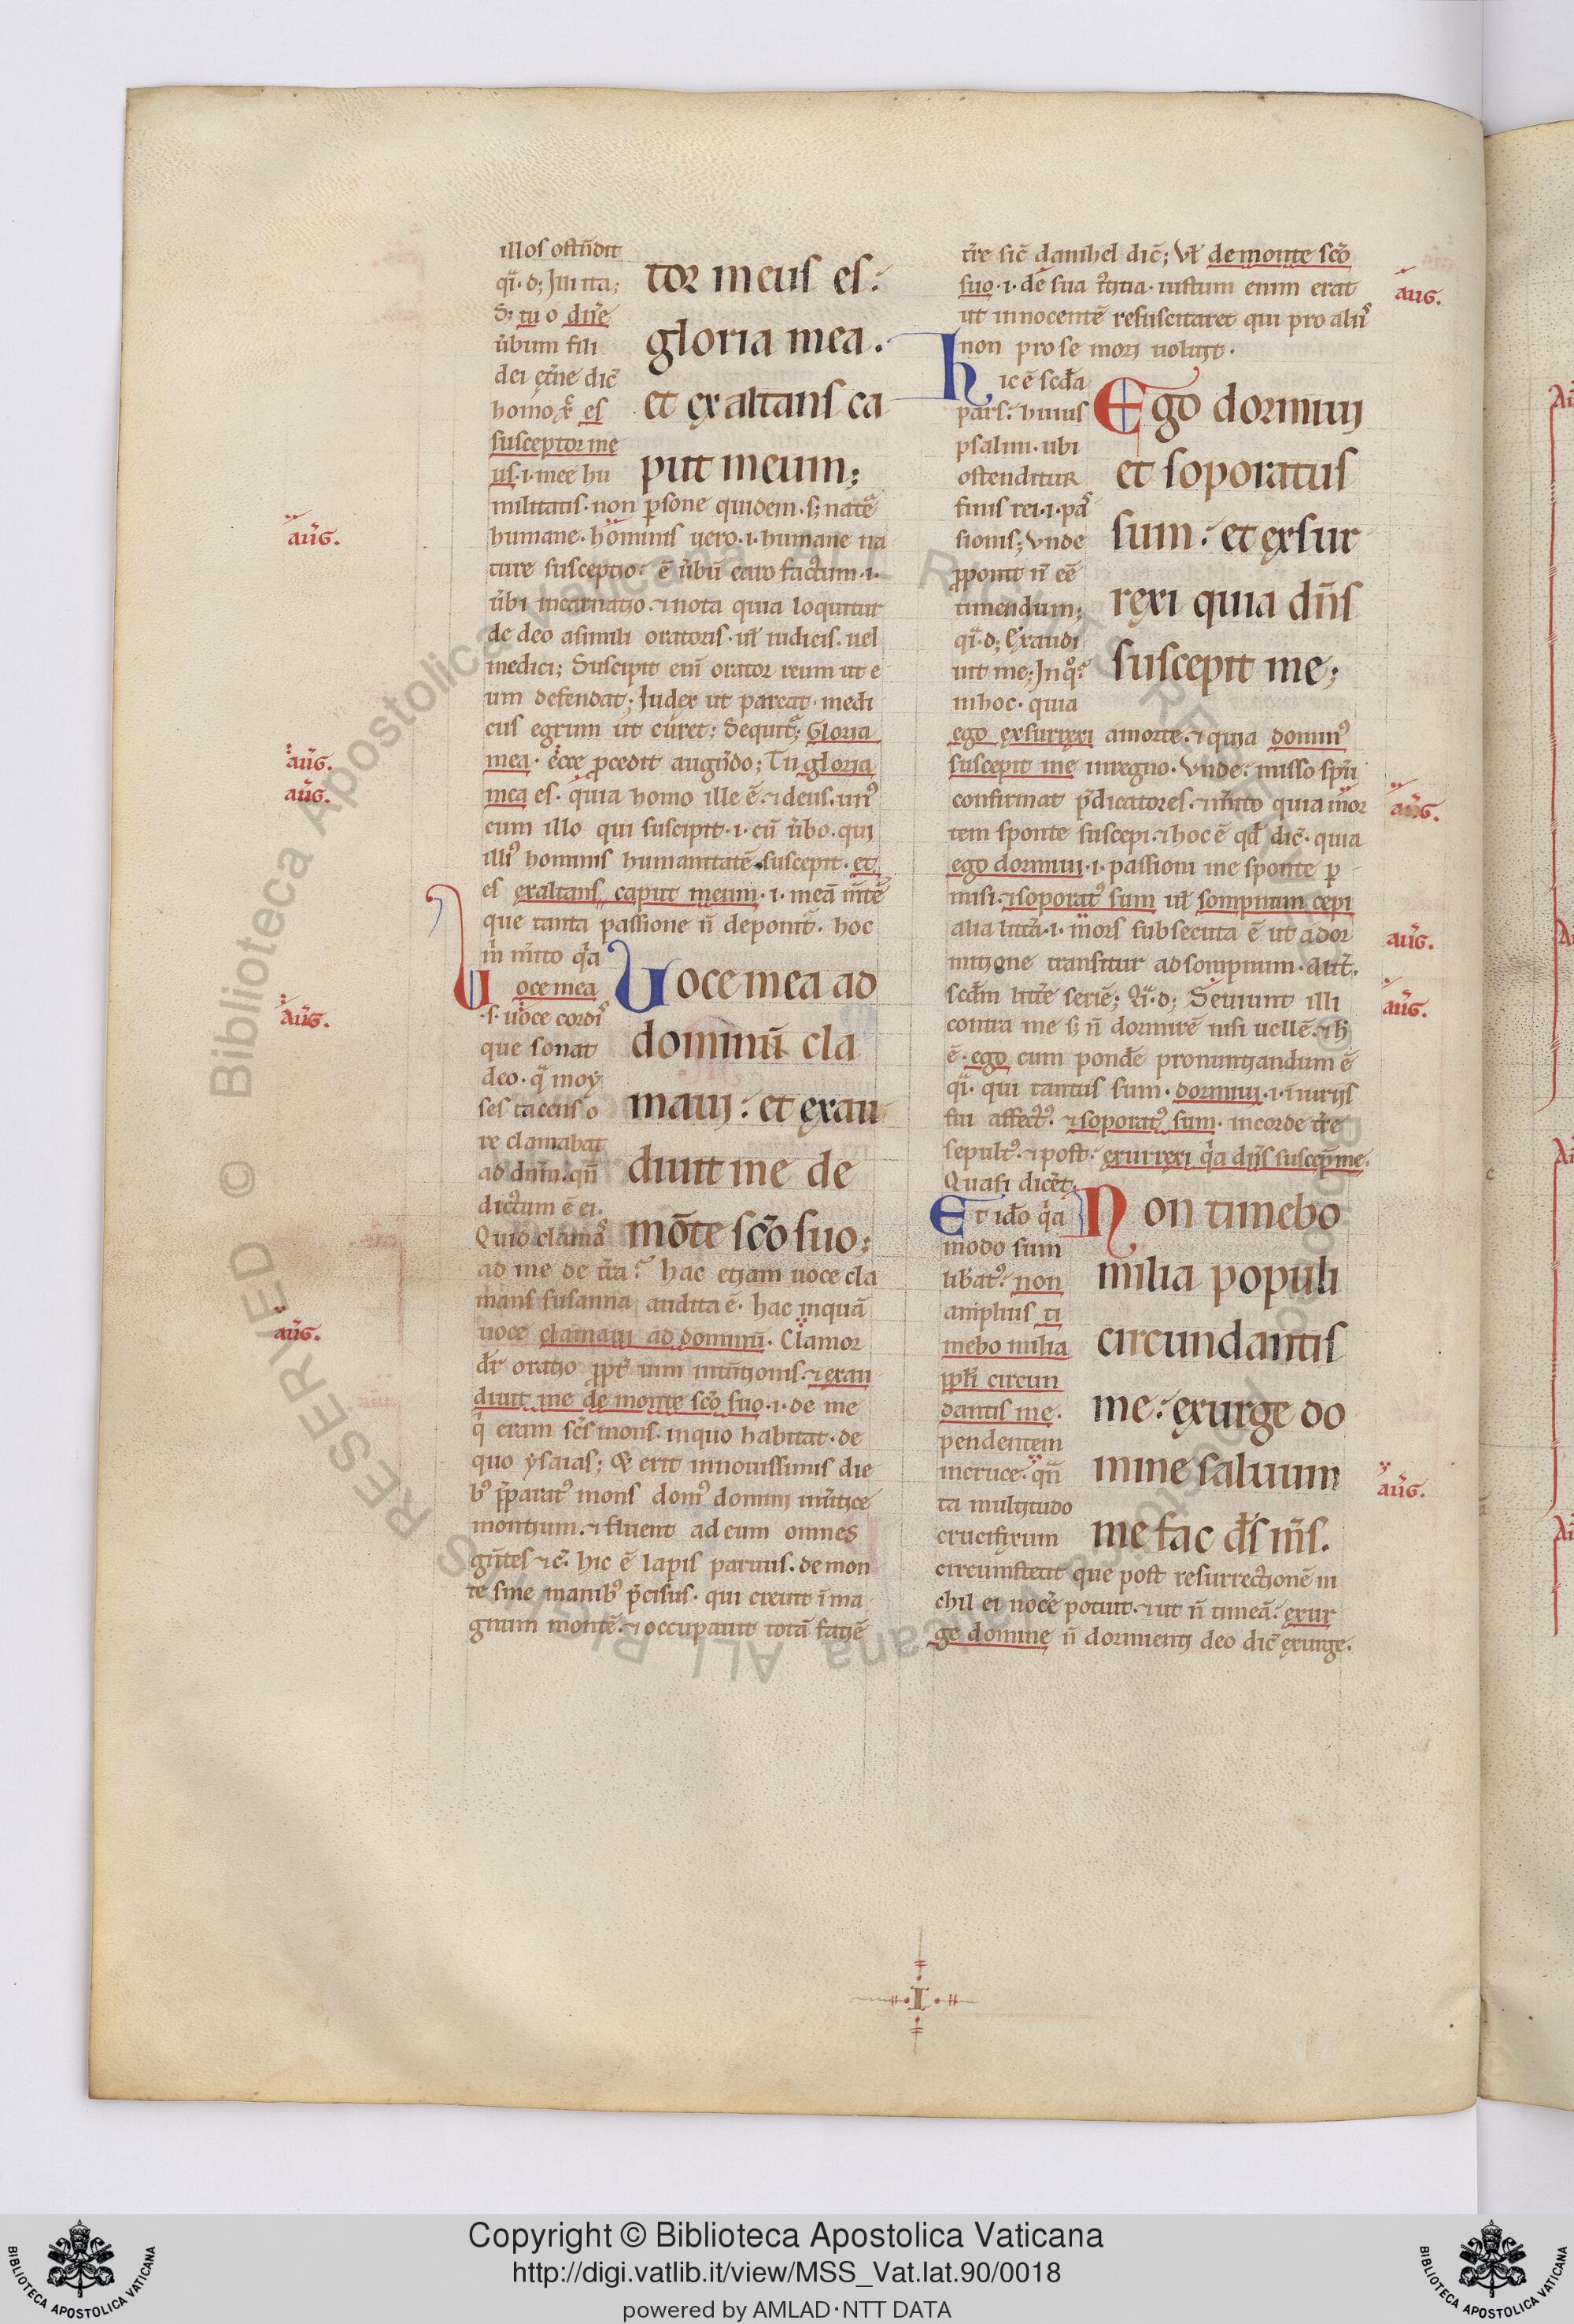 illos oste͂dit
qͥ. d; Illi ita;
S; tu o dn͂e
u͂bum fili
dei et͂ne dic͂
homo. xͬ es
susceptor me
us .i. mee hu
militatis. non ꝑsone quidem. s; nat͂e
humane. hominis uero .i. humane na
ture susceptio. ē u͂bū caro factum .i.
u͂bi incarnatio. ⁊ nota quia loquitur
de deo a simili oratoris. ul͂ iudicis. uel
medici; Suscipit eni͂ orator reum ut e
um defendat; Iudex ut parcat. medi
cus egrum ut curet; Sequit᷑; Gloria
mea. Ecce ꝓcedit augn͂do; Tu gloria
mea es. quia homo ille ē. ⁊ deus. unꝰ
cum illo qui suscipit .i. cū u͂bo. qui
illiꝰ hominis humanitatē suscepit. et
es exaltans caput meum .i. meā m͂tē
que tanta passione n͂ deponit᷑. hoc
m͂ m͂ito qͥa
Uoce mea
.s. uoce cordis
que sonat
deo. qͣ moy
ses tacens o
re clamabat
ad dn͂m. qn͂
dictum ē ei.
Quid clamas
ad me de t͂ra? hac etiam uoce cla
mans susanna audita ē. hac inquā
uoce clamaui ad dominū. Clamor
dr͂ oratio ꝓpt͂ uim int͂tionis. ⁊ exau
diuit me de monte sc͂o suo .i. de me
qͥ eram sc͂s mons. in quo habitat. de
quo ysaias; Et erit in nouissimis die
bꝰ p͂paratꝰ mons domꝰ domini in u͂tice
montium. ⁊ fluent ad eum omnes
gn͂tes ⁊ c͂. hic ē lapis paruus. de mon
te sine manibꝰ p͂cisus. qui creuit ī ma
gnum montē. ⁊ occupauit totā faciē
tor meus es:
gloria mea.
et exaltans ca
put meum;
Uoce mea ad
dominū cla
maui: et exau
diuit me de
mōte sc͂o suo;
t͂re sic͂ danihel dic͂; Ul͂ de monte sc͂o
suo .i. de sua iustitia. iustum enim erat
ut innocentē resuscitaret qui pro aliis
non pro se mori uoluit.
Hic ē scd͂a
pars. huius
psalmi. ubi
ostenditur
finis rei .i. pas
sionis; Unde
ꝓponit n͂ eē
timendum;
qͥ. d; Exaudi
uit me; In qͦ?
in hoc. quia
ego exsurrexi a morte. ⁊ quia dominꝰ
suscepit me in regno. Unde. misso spu͂
confirmat p͂dicatores. ⁊ m͂ito quia mor
tem sponte suscepi. ⁊ hoc ē qd͂ dic͂. quia
ego dormiui .i. passioni me sponte ꝑ
misi. ⁊ soporatꝰ sum ul͂ sompnum cepi
alia litt͂a .i. mors subsecuta ē ut a dor
mitione transitur ad sompnum. Aut͂.
scd͂m litt͂e seriē; Qͥ. d; Seuiunt illi
contra me s; n͂ dormirē nisi uellē. ⁊ h͂
ē. ego cum pond͂e pronuntiandum ē
qͥ. qui tantus sum. dormiui .i. iniuriis
fui affectꝰ. ⁊ soporatꝰ sum. in corde t͂re
sepultꝰ. ⁊ post. exurrexi qͥa dn͂s suscep͂ me.
Quasi dicet.
Et ido͂ qͥa
modo sum
lib͂atꝰ. non
amplius ti
mebo milia
ppl͂i circun
dantis me.
pendentem
in cruce. qn͂
ta multitudo
crucifixum
circumstetit que post resurrectionē ni
chil ei noc͂e potuit. ⁊ ut n͂ timeā. exur
ge domine n͂ dormienti deo dic͂ exurge.
Ego dormiui
et soporatus
sum: et exsur
rexi quia dn͂s
suscepit me;
Non timebo
milia populi
circundantis
me: exurge do
mine saluum
me fac ds͂ ms͂.
aug͂.
aug͂.
aug͂.
aug͂.
aug͂.
aug͂.
aug͂.
aug͂.
aug͂.
aug͂.
.I.
Biblioteca Apostolica Vaticana ALL RIGHTS RESERVED ©
Copyright © Biblioteca Apostolica Vaticana
http://digi.vatlib.it/view/MSS_Vat.lat.90/0018
powered by AMLAD·NTT DATA
BIBLIOTECA APOSTOLICA VATICANA
BIBLIOTECA APOSTOLICA VATICANA